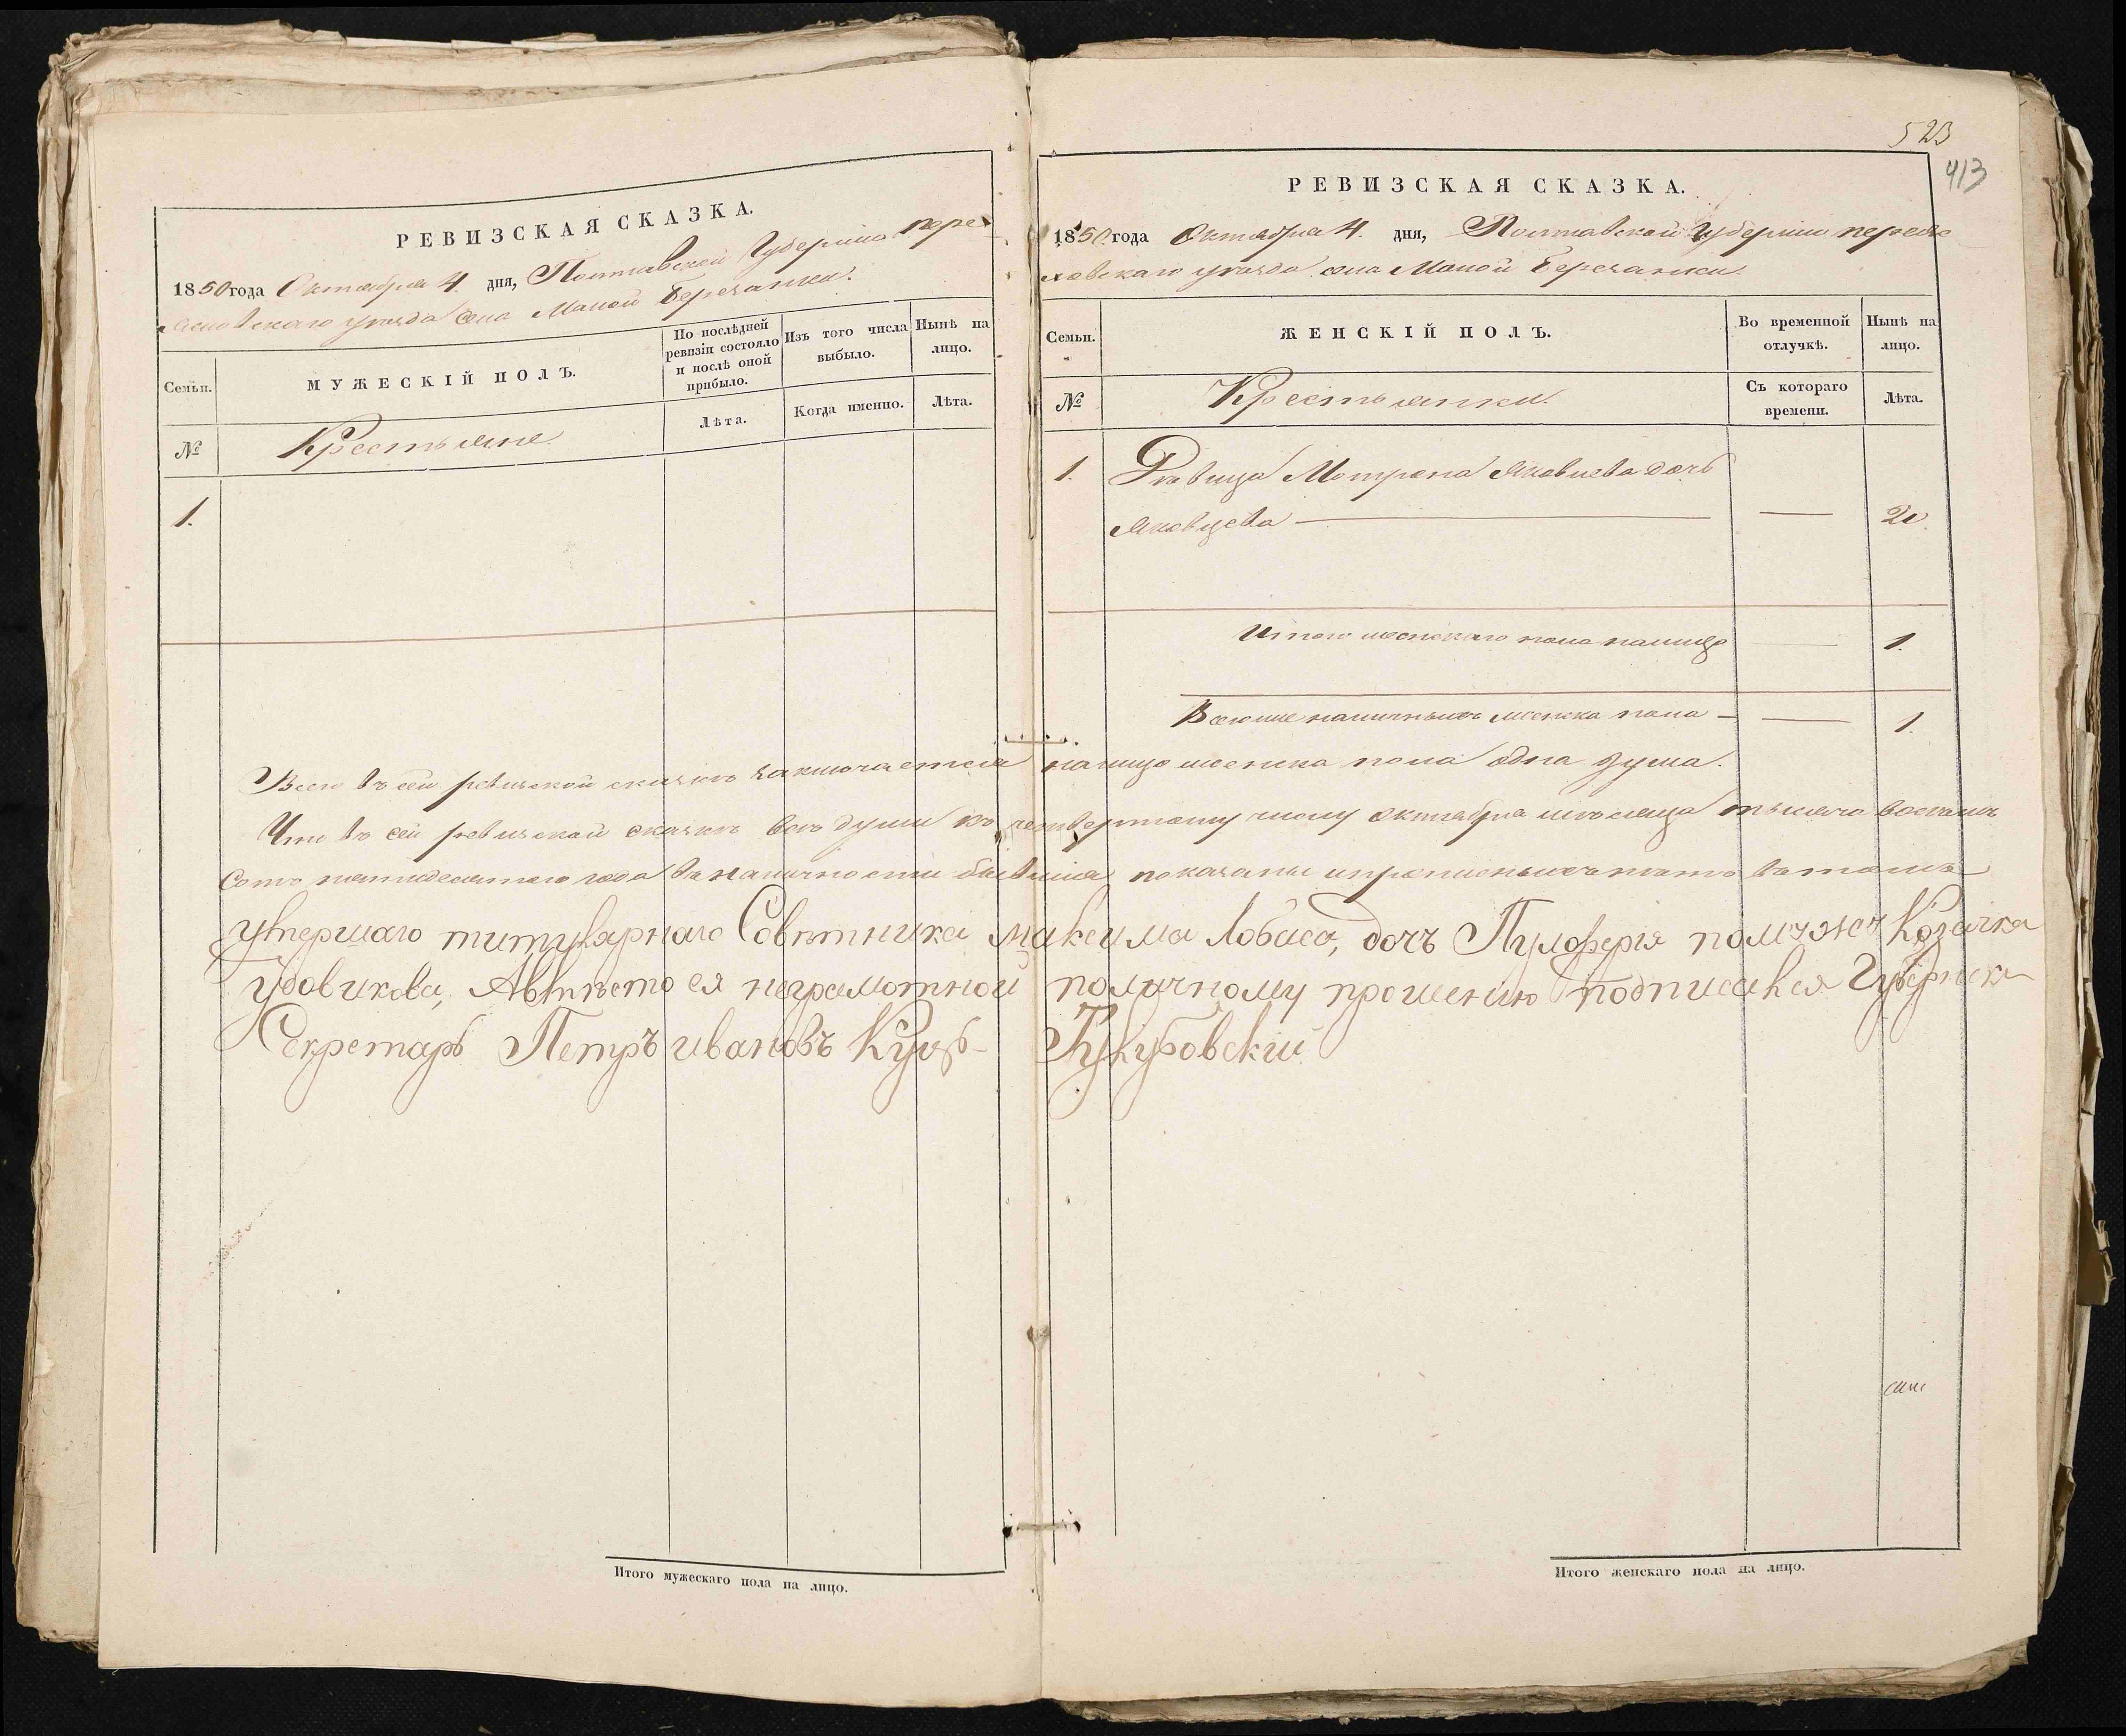 РЕВИЗСКАЯ СКАЗКА.
1850 года Октября 4. дня, Полтавской Губерніи пере-
яславскаго уезда села Малой Березанки.
Семьи.
МУЖЕСКІЙ ПОЛЪ.
По послѣдней
ревизіи состояло
и послѣ оной
прибыло.
Изъ того числа
выбыло.
Нынѣ на
лицо.
№
Крестьяне
Лѣта.
Когда именно.
Лѣта.
1.
523
413
РЕВИЗСКАЯ СКАЗКА.
1850 года Октября 4. дня, Полтавской Губерніи перея
славскаго уезда села Малой Березанки
Семьи.
ЖЕНСКІЙ ПОЛЪ.
Во временной
отлучкѣ.
Нынѣ на
лицо.
№
Крестьянки
Съ котораго
времени.
Лѣта.
1. Девица Мотрона Яковлева дочь
— 20
Итого женскаго пола налицо — 1.
Всего наличныхъ женска пола — — 1.
Всего въ сей ревизской сказке заключается налицо женска пола одна душа.
Что въ сей ревизской сказке все души къ четвертому числу октября месяца тысяча восемь
сотъ пятидесятаго года въ наличности бывшіе показаны
умершаго титулярнаго Советника максима Лобаса, дочь Пулхерія помужеч Козачка
Удовикова, Авместо ея неграмотной поличному прошению подписался Губернски
Секретарь Петръ ивановъ Кулб-
Итого мужескаго пола на лицо.
Итого женскаго пола на лицо.